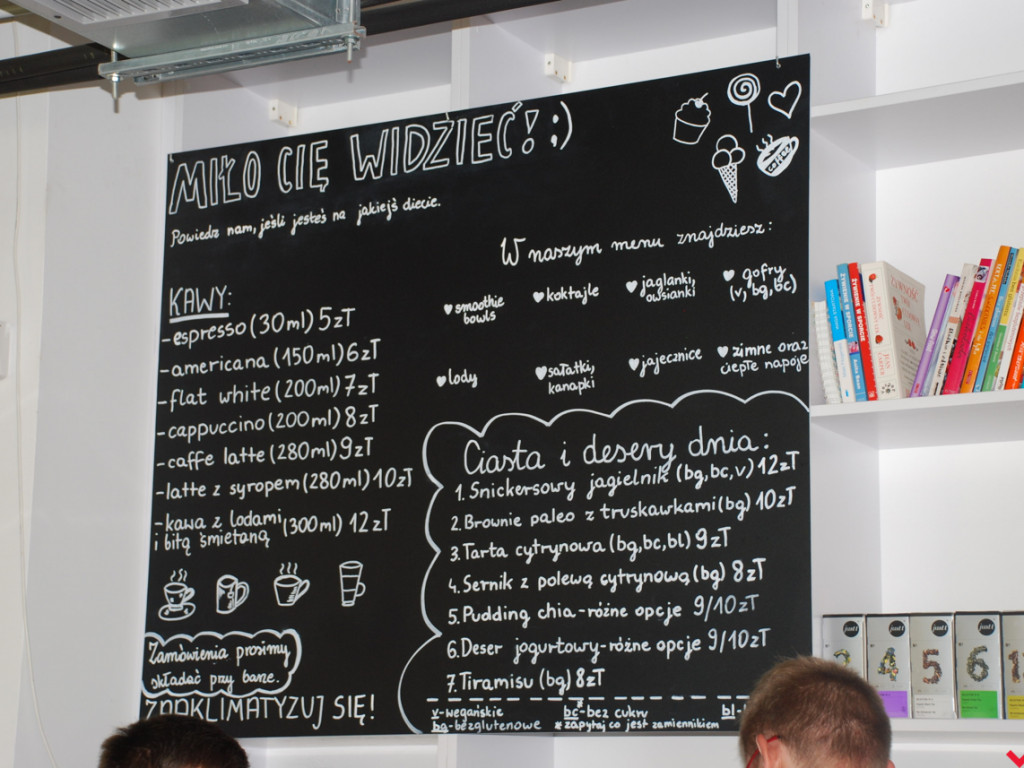 MIŁO CIĘ WIDZIEĆ! ;)
Powiedz nam, jeśli jesteś na jakiejś diecie.
KAWY:
-espresso (30ml) 5zł
-americana (150ml) 6zł
-flat white (200ml) 7zł
-cappuccino (200ml) 8zł
-caffe latte (280ml) 9zł
-latte z syropem (280ml) 10zł
-kawa z lodami
i bitą śmietaną (300ml) 12zł
Zamówienia prosimy
składać przy barze.
ZAAKLIMATYZUJ SIĘ!
coffee
W naszym menu znajdziesz:
smoothie
bowls
koktajle
jaglanki,
owsianki
gofry
(v, bg, bc)
lody
sałatki,
kanapki
jajecznice
zimne oraz
ciepłe napoje
Ciasta i desery dnia:
1. Snickersowy jagielnik (bg, bc, v) 12zł
2. Brownie paleo z truskawkami (bg) 10zł
3. Tarta cytrynowa (bg, bc, bl) 9zł
4. Sernik z polewą cytrynową (bg) 8zł
5. Pudding chia-różne opcje 9/10zł
6. Deser jogurtowy-różne opcje 9/10zł
7. Tiramisu (bg) 8zł
v-wegańskie
bc*-bez cukru
bl-
bg-bezglutenowe
*zapytaj co jest zamiennikiem
ŻYWIENIE W SPORCIE
ŻYWIENIE W SPORCIE
just t
just t
just t
just t
4
5
6